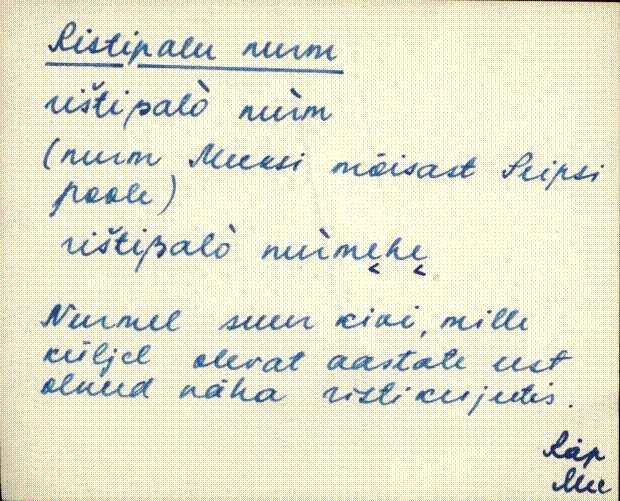 Ristipalu nurm
rištipalò nùrm
(nurm Meeksi mõisast Peipsi
poole)
rištipalò nùrmehe
Nurmel suur kivi, mille
küljel olevat aastate eest
olnud näha ristikujutis.
Räp
Mee